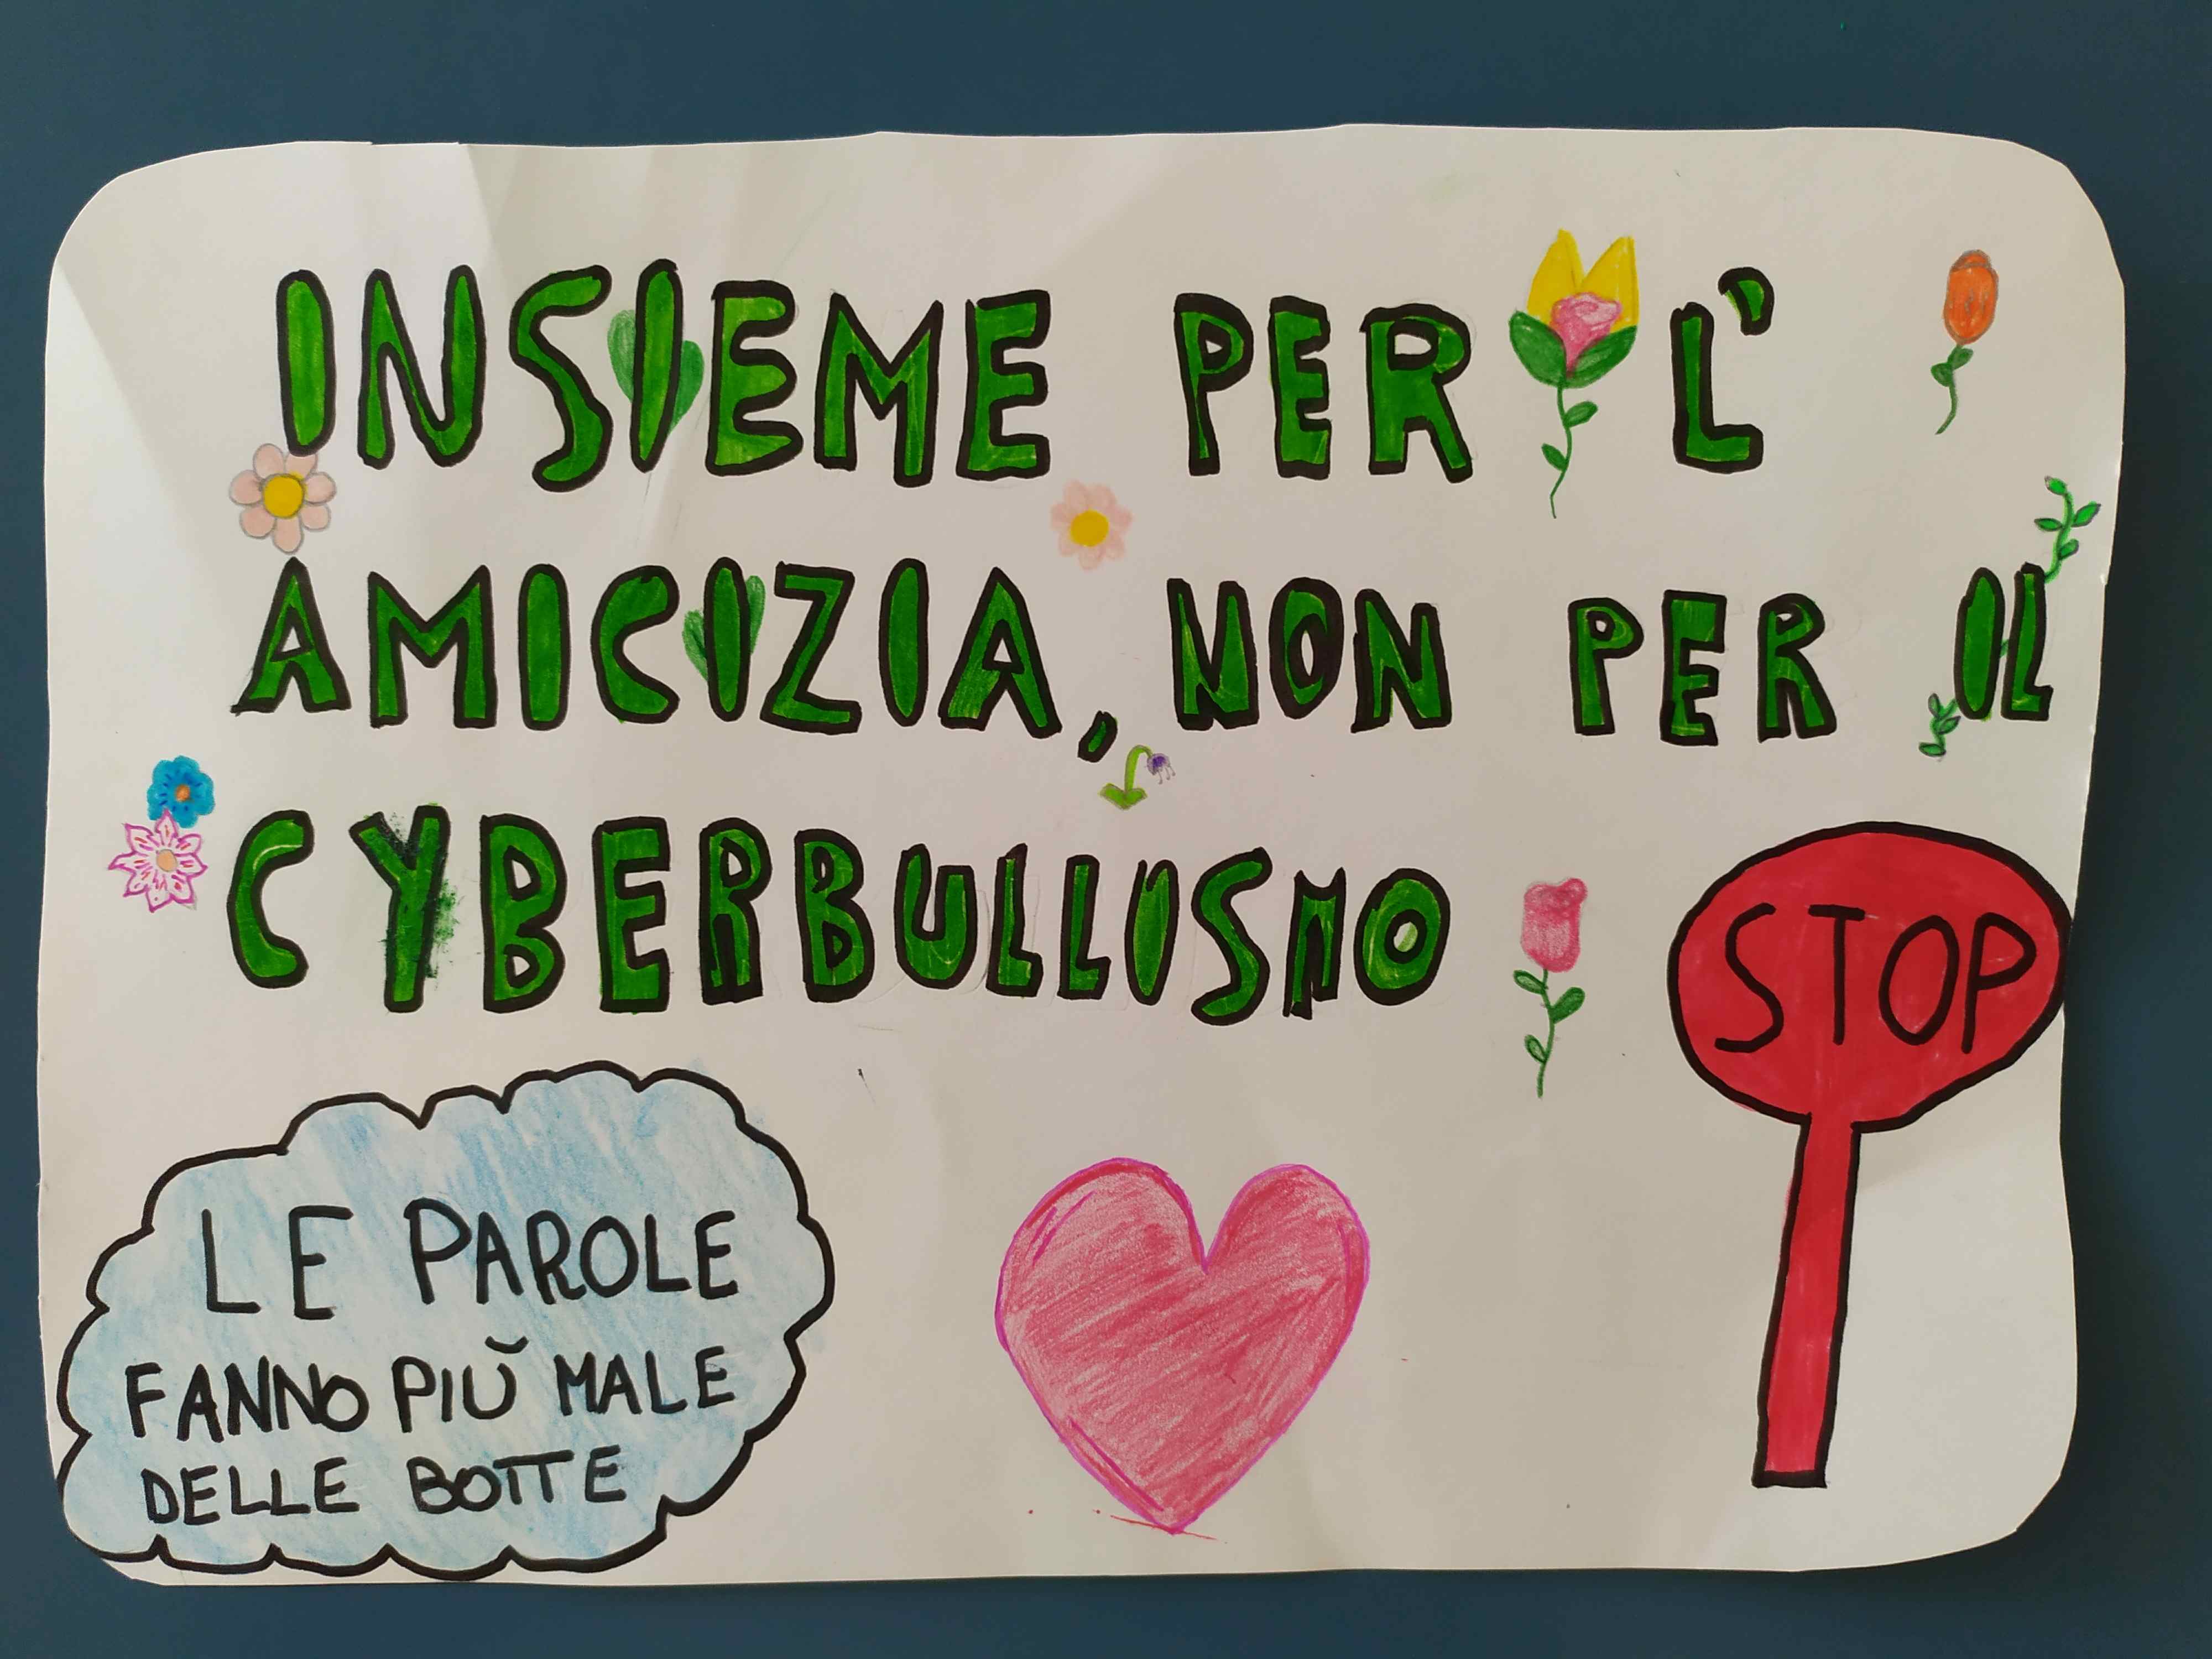 INSIEME PER L'
AMICIZIA, NON PER IL
CYBERBULLISMO
STOP
LE PAROLE
FANNO PIÙ MALE
DELLE BOTTE